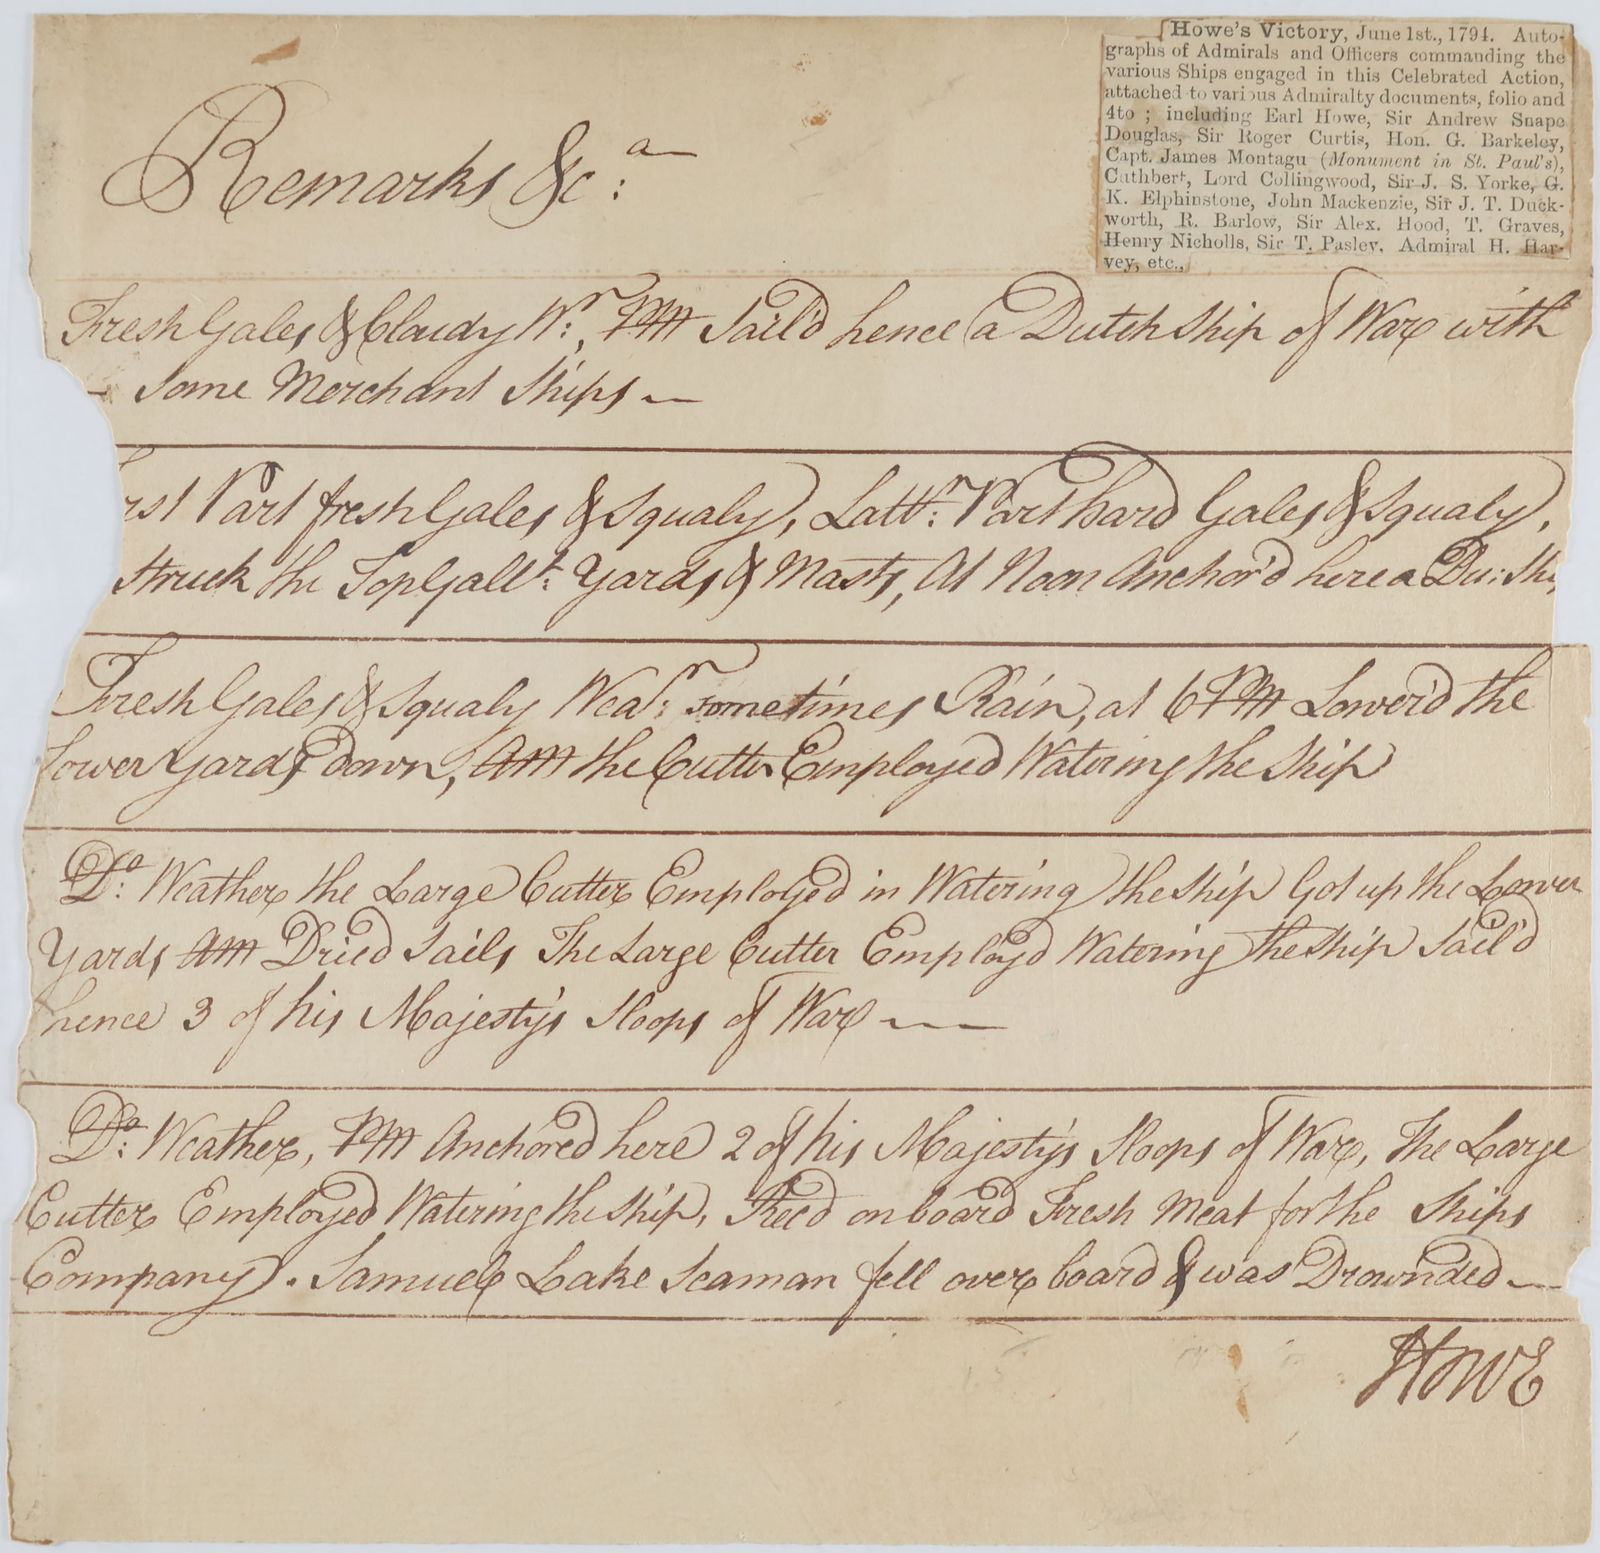 Remarks &c:a
[Howe's Victory, June 1st., 1794. Auto-
graphs of Admirals and Officers commanding the
various Ships engaged in this Celebrated Action,
attached to various Admiralty documents, folio and
4to ; including Earl Howe, Sir Andrew Snape
Douglas, Sir Roger Curtis, Hon. G. Barkeley,
Capt. James Montagu (Monument in St. Paul's),
Cuthbert, Lord Collingwood, Sir J. S. Yorke, G.
K. Elphinstone, John Mackenzie, Sir J. T. Duck-
worth, R. Barlow, Sir Alex. Hood, T. Graves,
Henry Nicholls, Sir T. Pasley, Admiral H. Har-
vey, etc.,
Fresh Gales & Cloudy Wr:, PM Sail'd hence a Dutch Ship of War with
some Merchant Ships—
rst Part fresh Gales & Squaly, Lattr: Part hard Gales & Squaly,
struck the TopGallt: Yards & Masts, At Noon Anchor'd here a Du: Shi
Fresh Gales & Squaly Wear: sometimes Rain, at 6 PM Lower'd the
Lower Yards down, AM the Cutter Employed Watering the Ship
Do: Weather the Large Cutter Employed in Watering the Ship Got up the Lower
Yards AM Dried Sails The Large Cutter Employd Watering the Ship Sail'd
hence 3 of his Majesty's Sloops of War —
Do: Weather, PM Anchored here 2 of his Majesty's Sloops of War, The Large
Cutter Employed Watering the Ship, Rec'd on board Fresh Meat for the Ships
Company. Samuel Lake Seaman fell over board & was Drownded —
Howe